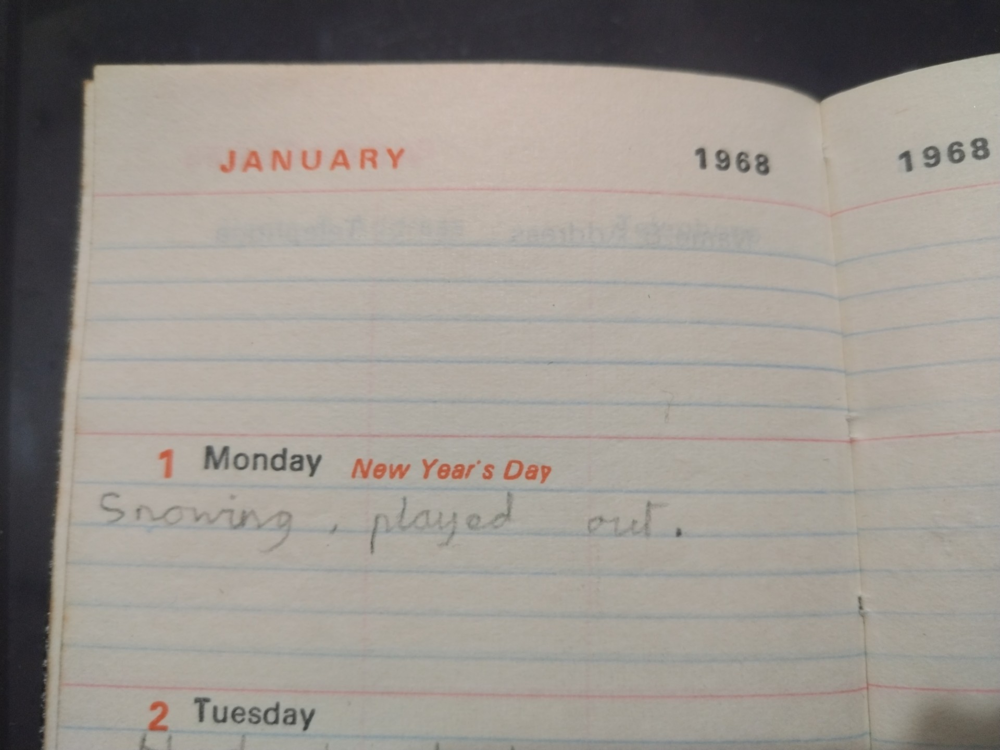 JANUARY 1968 1968
1 Monday New Year's Day
Snowing, played out.
2 Tuesday